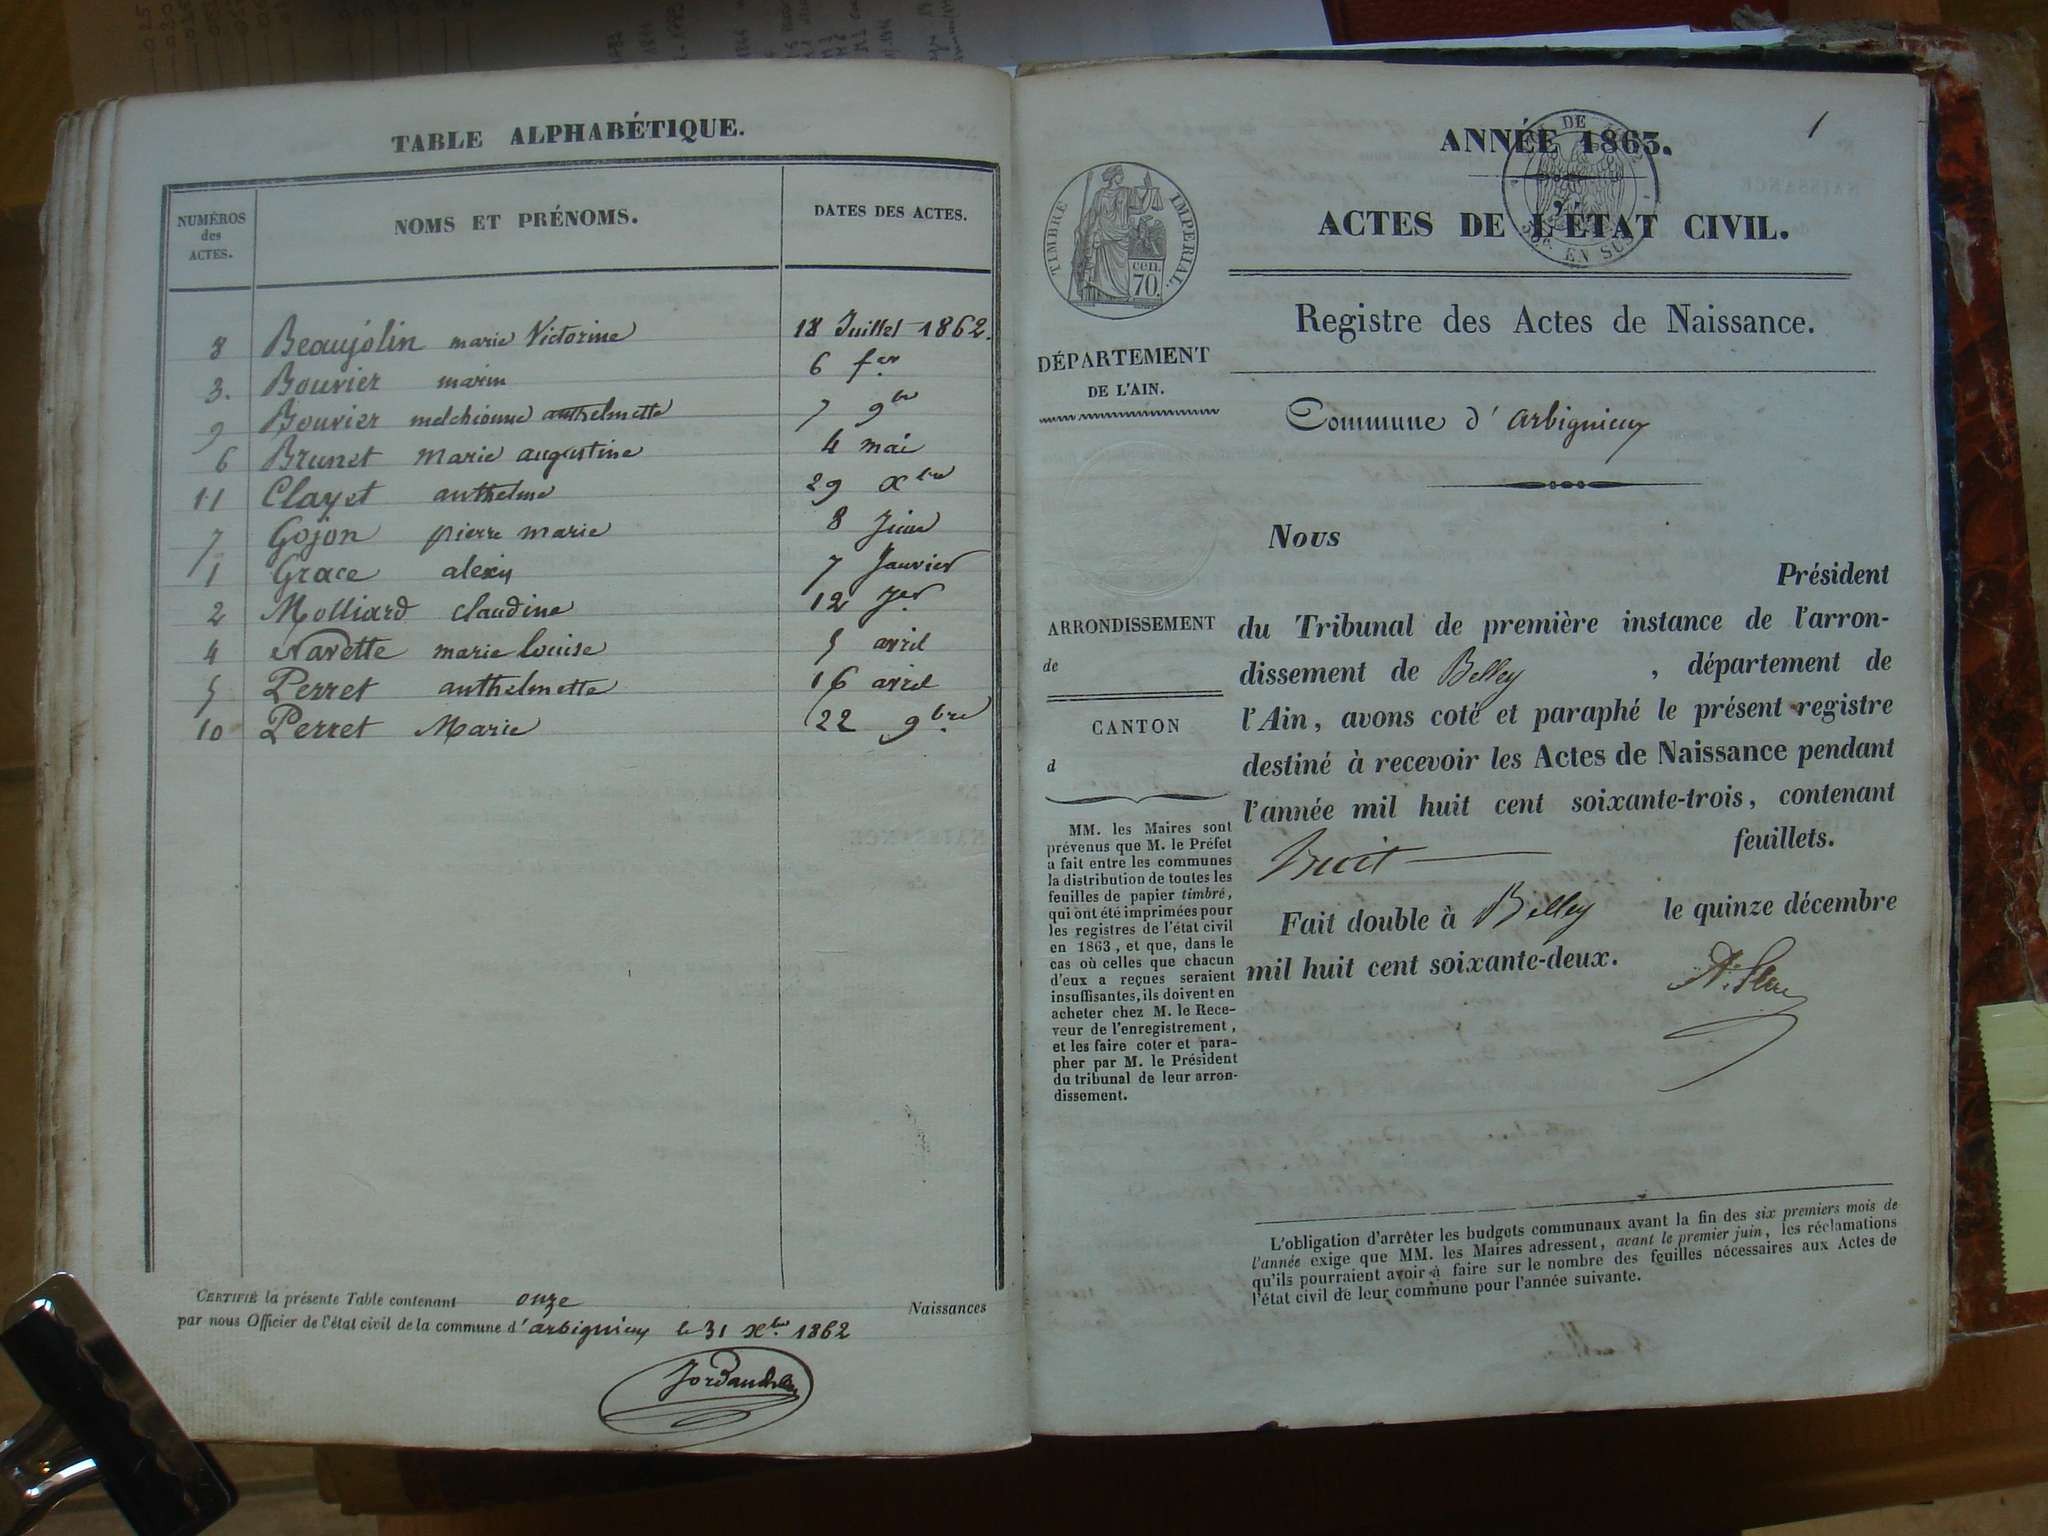 TABLE ALPHABÉTIQUE.
NUMÉROS des ACTES. NOMS ET PRÉNOMS. DATES DES ACTES.
8 Beaujolin marie Victorine 18 Juillet 1862.
3. Bouvier marin 6 fer
9 Bouvier melchionne anthelmette 7 9bre
6 Brunet Marie augustine 4 mai
11 Clayet anthelme 29 xbre
7 Gojon pierre marie 8 Juin
1 Grace alexis 7 Janvier
2 Molliard claudine 12 Jer
4 Navette marie Louise 5 avril
5 Perret anthelmette 16 avril
10 Perret Marie 22 9bre
CERTIFIÉ la présente Table contenant onze Naissances
par nous Officier de l'état civil de la commune d'arbignieux le 31 xbre 1862
1
ANNÉE 1863.
ACTES DE L'ÉTAT CIVIL.
TIMBRE IMPERIAL.
cen.
70.
EN SUS
Registre des Actes de Naissance.
DÉPARTEMENT
DE L'AIN.
Commune d'arbignieux
ARRONDISSEMENT
de
CANTON
d
MM. les Maires sont
prévenus que M. le Préfet
a fait entre les communes
la distribution de toutes les
feuilles de papier timbré,
qui ont été imprimées pour
les registres de l'état civil
en 1863, et que, dans le
cas où celles que chacun
d'eux a reçues seraient
insuffisantes, ils doivent en
acheter chez M. le Rece-
veur de l'enregistrement,
et les faire coter et para-
pher par M. le Président
du tribunal de leur arron-
dissement.
Nous
Président
du Tribunal de première instance de l'arron-
dissement de Belley, département de
l'Ain, avons coté et paraphé le présent registre
destiné à recevoir les Actes de Naissance pendant
l'année mil huit cent soixante-trois, contenant
huit feuillets.
Fait double à Belley le quinze décembre
mil huit cent soixante-deux.
L'obligation d'arrêter les budgets communaux avant la fin des six premiers mois de
l'année exige que MM. les Maires adressent, avant le premier juin, les réclamations
qu'ils pourraient avoir à faire sur le nombre des feuilles nécessaires aux Actes de
l'état civil de leur commune pour l'année suivante.